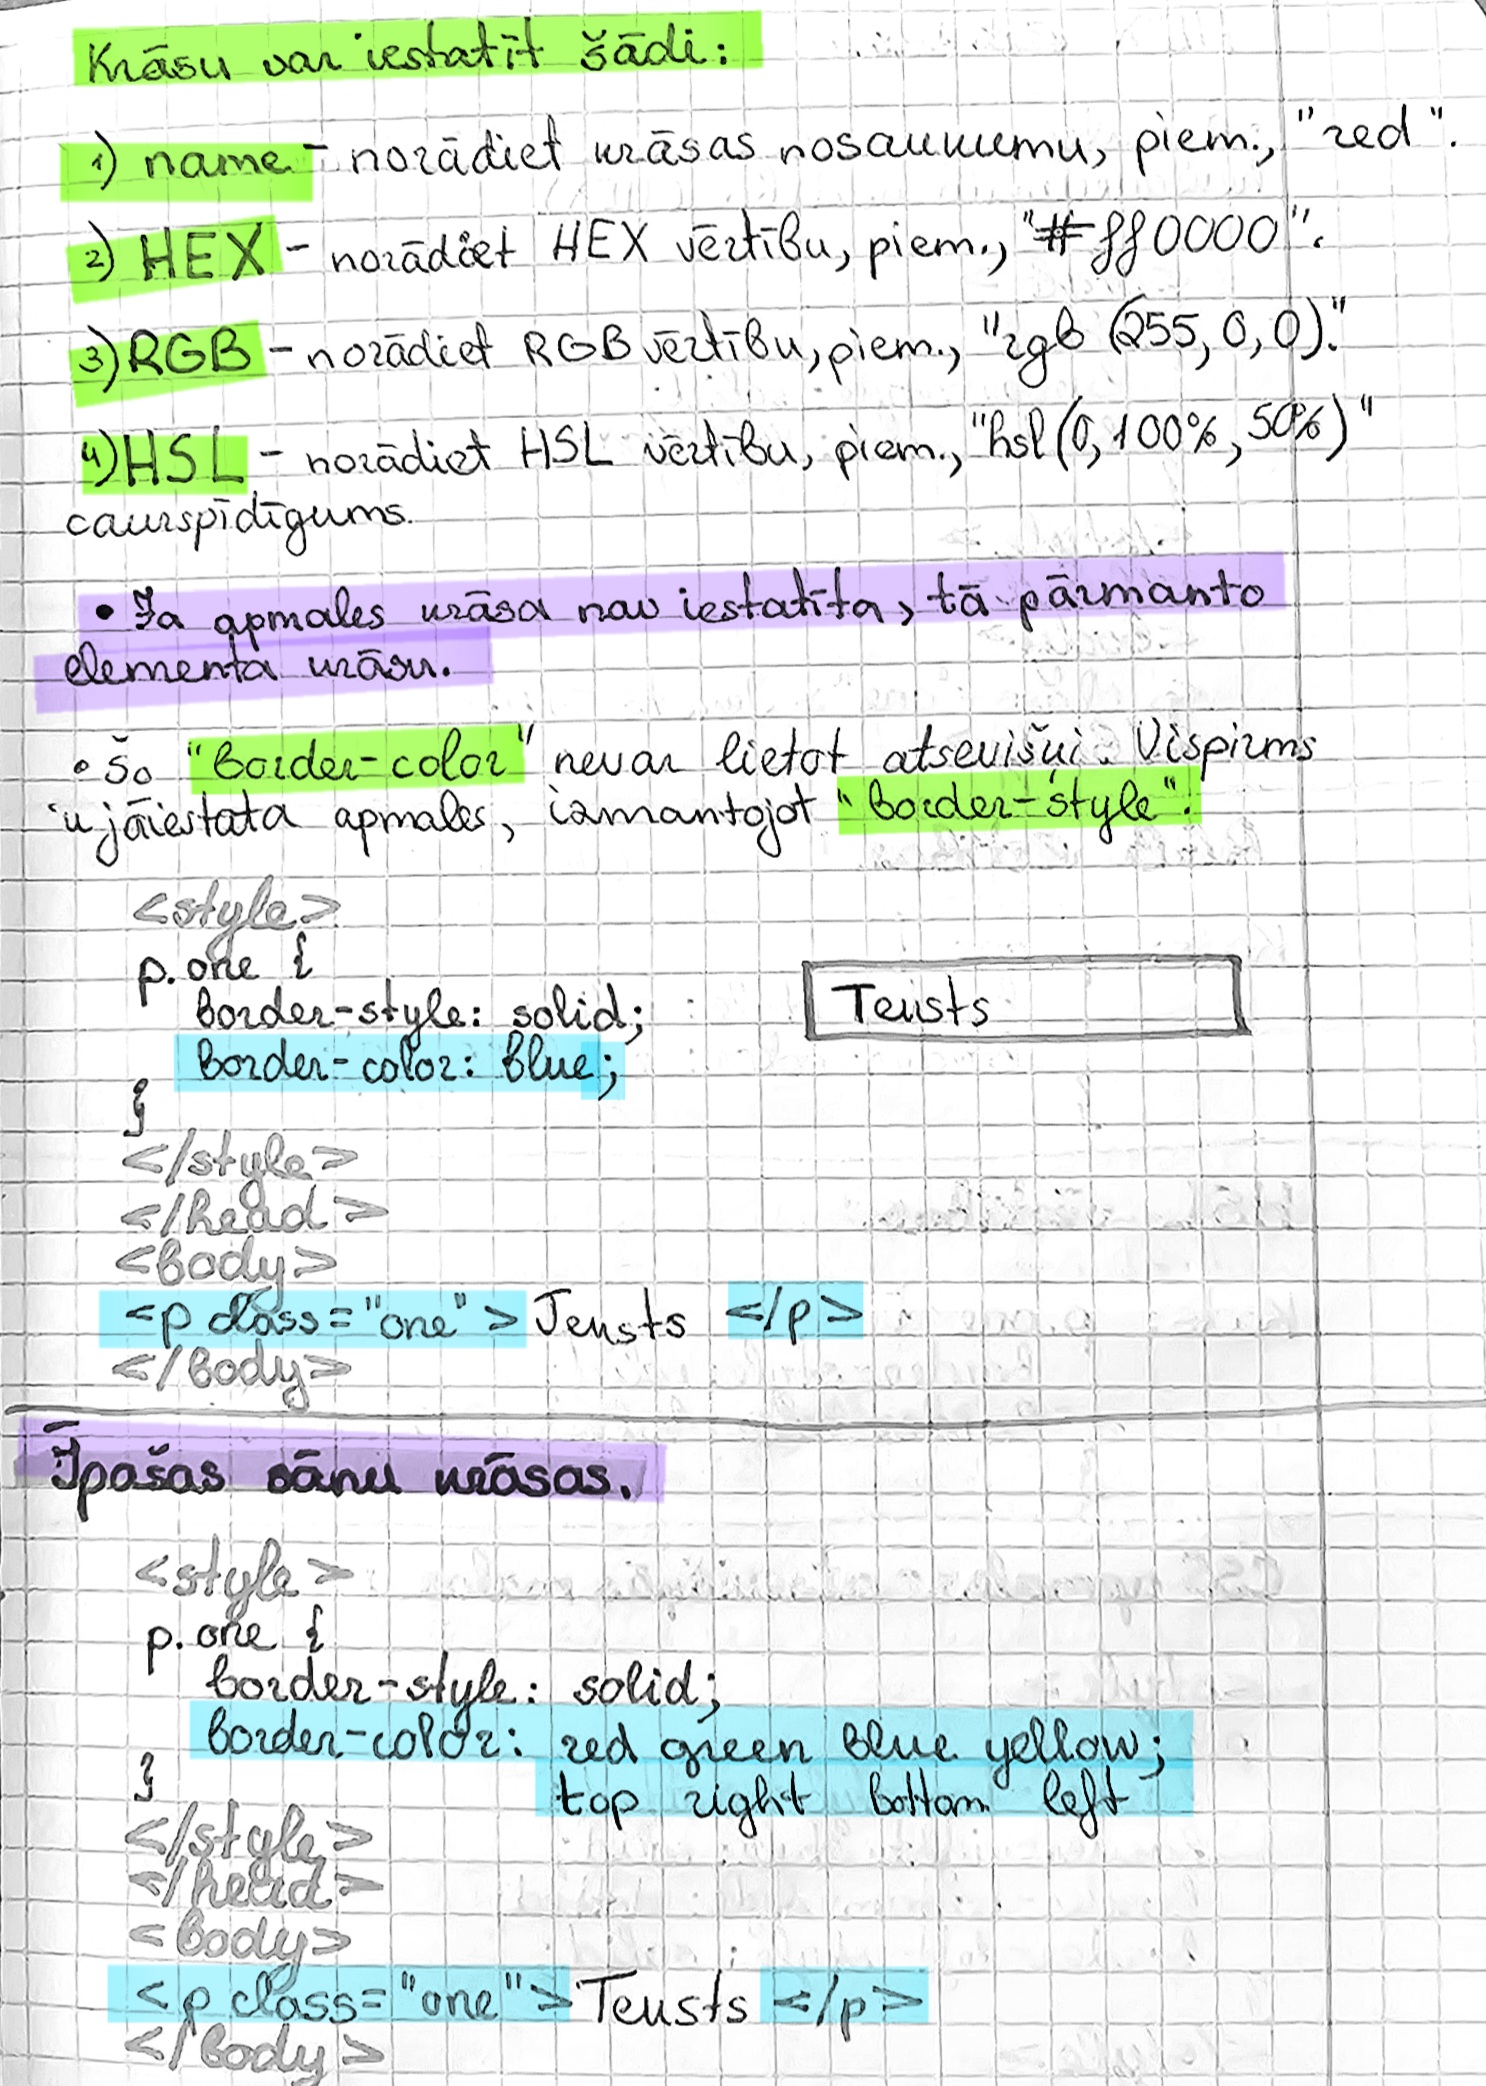 Krāsu var iestatīt šādi:
1) name - norādiet krāsas nosaukumu, piem., "red".
2) HEX - norādiet HEX vērtību, piem., "#ff0000".
3) RGB - norādiet RGB vērtību, piem., "rgb (255, 0, 0)."
4) HSL - norādiet HSL vērtību, piem., "hsl (0, 100%, 50%)"
caurspīdīgums.
• Ja apmales krāsa nav iestatīta, tā pārmanto
elementa krāsu.
• Šo "border-color" nevar lietot atsevišķi. Vispirms
ir jāiestata apmales, izmantojot "border-style".
<style>
p.one {
border-style: solid;
Teksts
border-color: blue;
}
</style>
</head>
<body>
<p class="one"> Teksts </p>
</body>
Īpašas sānu krāsas.
<style>
p.one {
border-style: solid;
border-color: red green blue yellow;
}
top right bottom left
</style>
</head>
<body>
<p class="one"> Teksts </p>
</body>